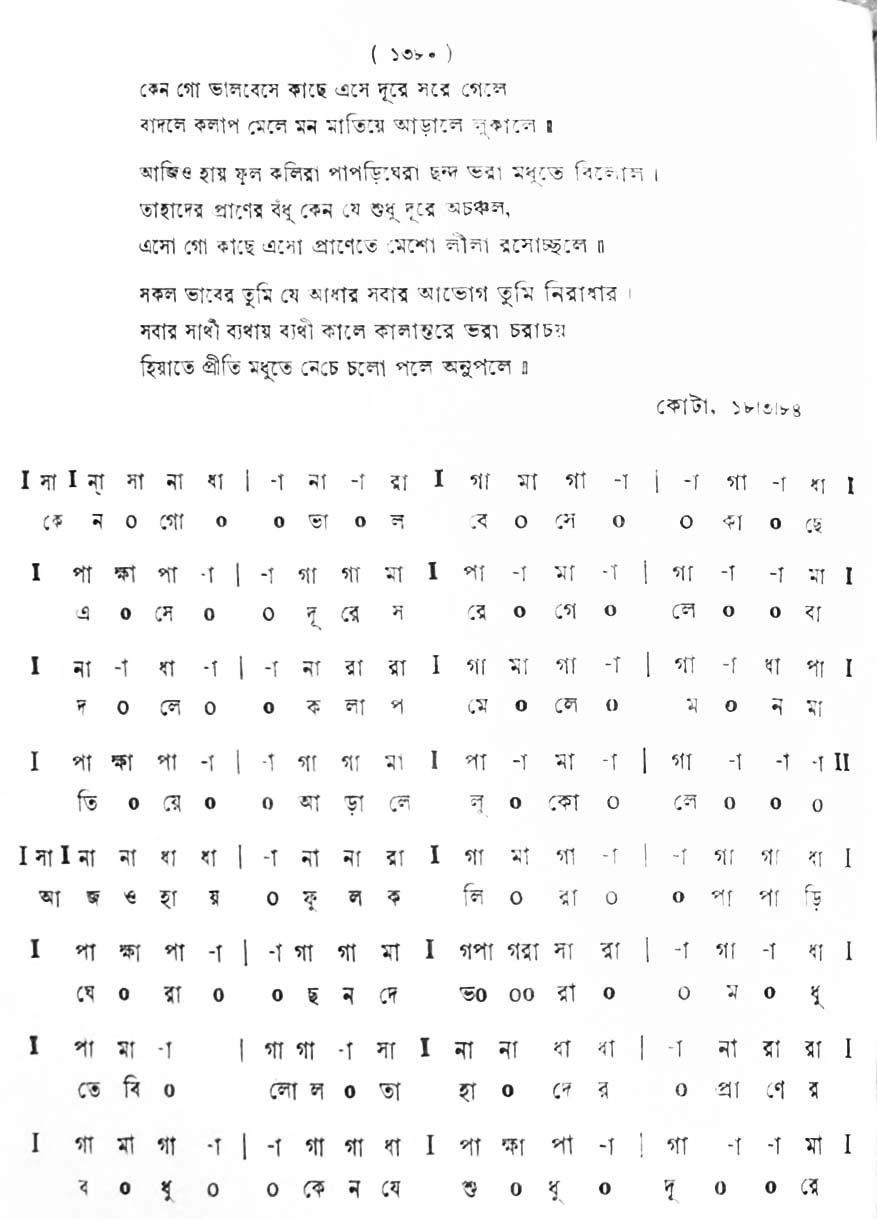 ( ১৩৮০ )
কেন গো ভালবেসে কাছে এসে দূরে সরে গেলে
বাদলে কলাপ মেলে মন মাতিয়ে আড়ালে লুকালে ॥
আজিও হায় ফুল কলিরা পাপড়িঘেরা ছন্দ ভরা মধুতে বিলোল ।
তাহাদের প্রাণের বঁধু কেন যে শুধু দূরে অচঞ্চল,
এসো গো কাছে এসো প্রাণেতে মেশো লীলা রসোচ্ছলে ॥
সকল ভাবের তুমি যে আধার সবার আভোগ তুমি নিরাধার ।
সবার সাথী ব্যথায় ব্যথী কালে কালান্তরে ভরা চরাচয়
হিয়াতে প্রীতি মধুতে নেচে চলো পলে অনুপলে ॥
কোটা, ১৮।৩।৮৪
I সা I ন্া সা না ধা | -া না -া রা I গা মা গা -া | -া গা -া ধা I
কে ন ০ গো ০ ০ ভা ০ ল বে ০ সে ০ ০ কা ০ ছে
I পা ক্ষা পা -া | -া গা গা মা I পা -া মা -া | গা -া -া মা I
এ ০ সে ০ ০ দূ রে স রে ০ গে ০ লে ০ ০ বা
I না -া ধা -া | -া না রা রা I গা মা গা -া | গা -া ধা পা I
দ ০ লে ০ ০ ক লা প মে ০ লে ০ ম ০ ন মা
I পা ক্ষা পা -া | -া গা গা মা I পা -া মা -া | গা -া -া -া II
তি ০ য়ে ০ ০ আ ড়া লে লু ০ কো ০ লে ০ ০ ০
I সা I না না ধা ধা | -া না না রা I গা মা গা -া | -া গা গা ধা I
আ জ ও হা য় ০ ফু ল ক লি ০ রা ০ ০ পা পা ড়ি
I পা ক্ষা পা -া | -া গা গা মা I গপা গরা সা রা | -া গা -া ধা I
ঘে ০ রা ০ ০ ছ ন দে ভ০ ০০ রা ০ ০ ম ০ ধু
I পা মা -া | গা গা -া সা I না না ধা ধা | -া না রা রা I
তে বি ০ লো ল ০ তা হা ০ দে র ০ প্রা ণে র
I গা মা গা -া | -া গা গা ধা I পা ক্ষা পা -া | গা -া -া মা I
ব ০ ধু ০ ০ কে ন যে শু ০ ধু ০ দূ ০ ০ রে